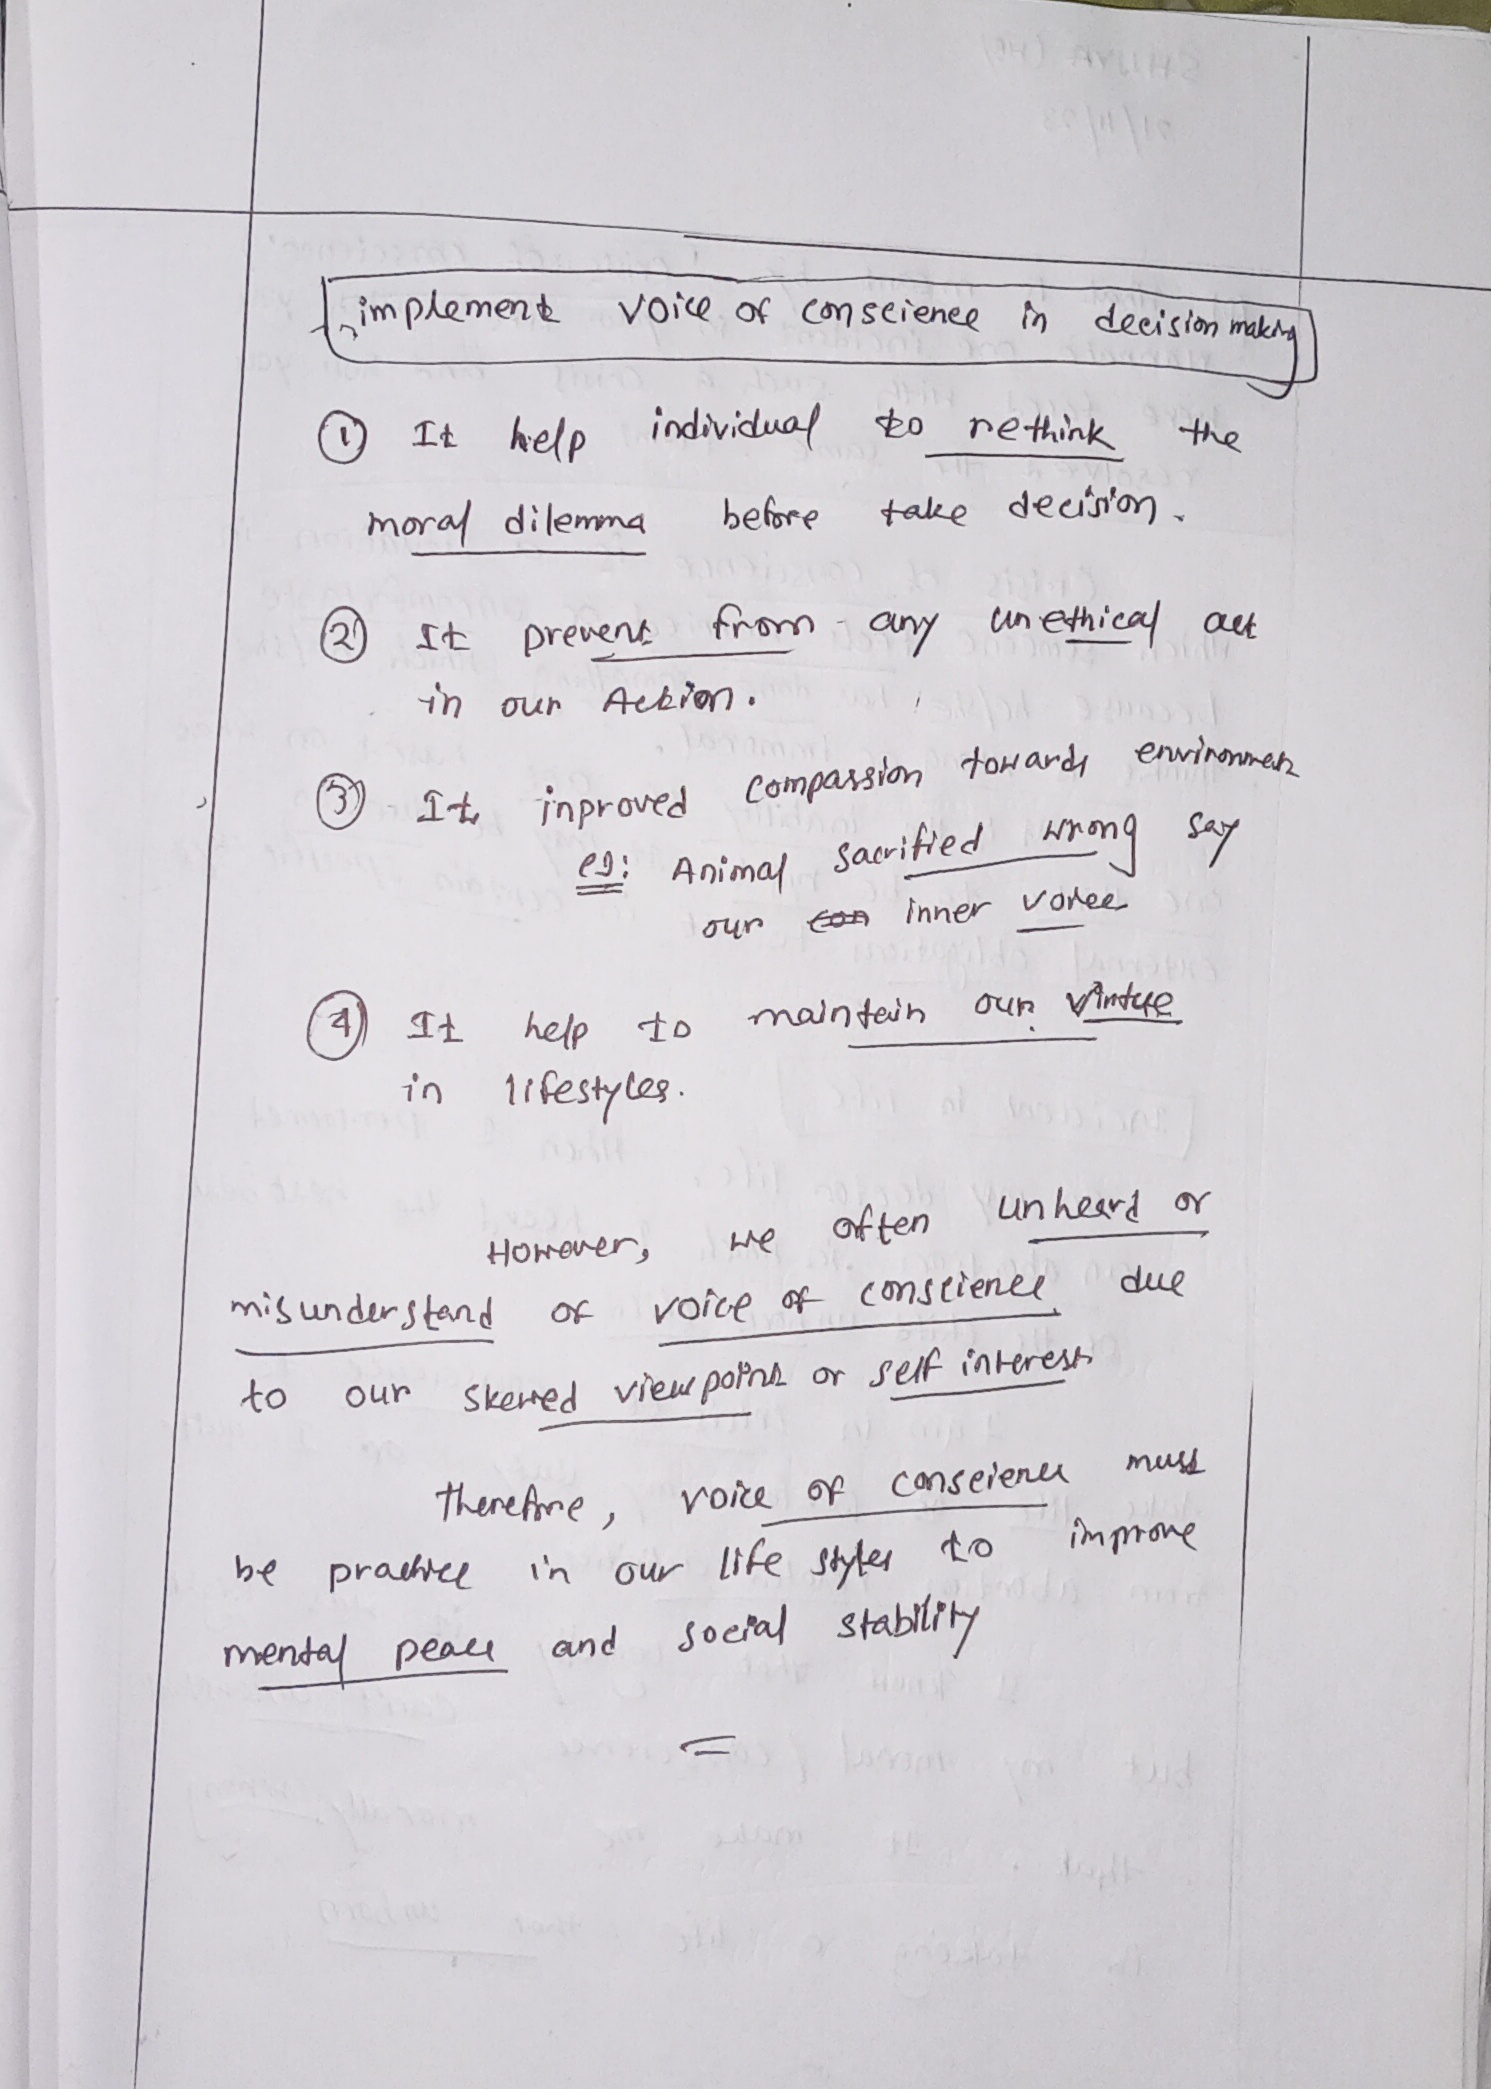 implement voice of conscience in decision making
① It help individual to rethink the
moral dilemma before take decision.
② It prevent from any unethical act
in our Action.
③ It inproved compassion towards environment
eg: Animal sacrified wrong say
our con inner voice
④ It help to maintain our virtue
in lifestyles.
However, we often unheard or
misunderstand of voice of conscience due
to our skewed viewpoint or self interest
therefore, voice of conscience must
be practice in our life styles to improve
mental peace and social stability